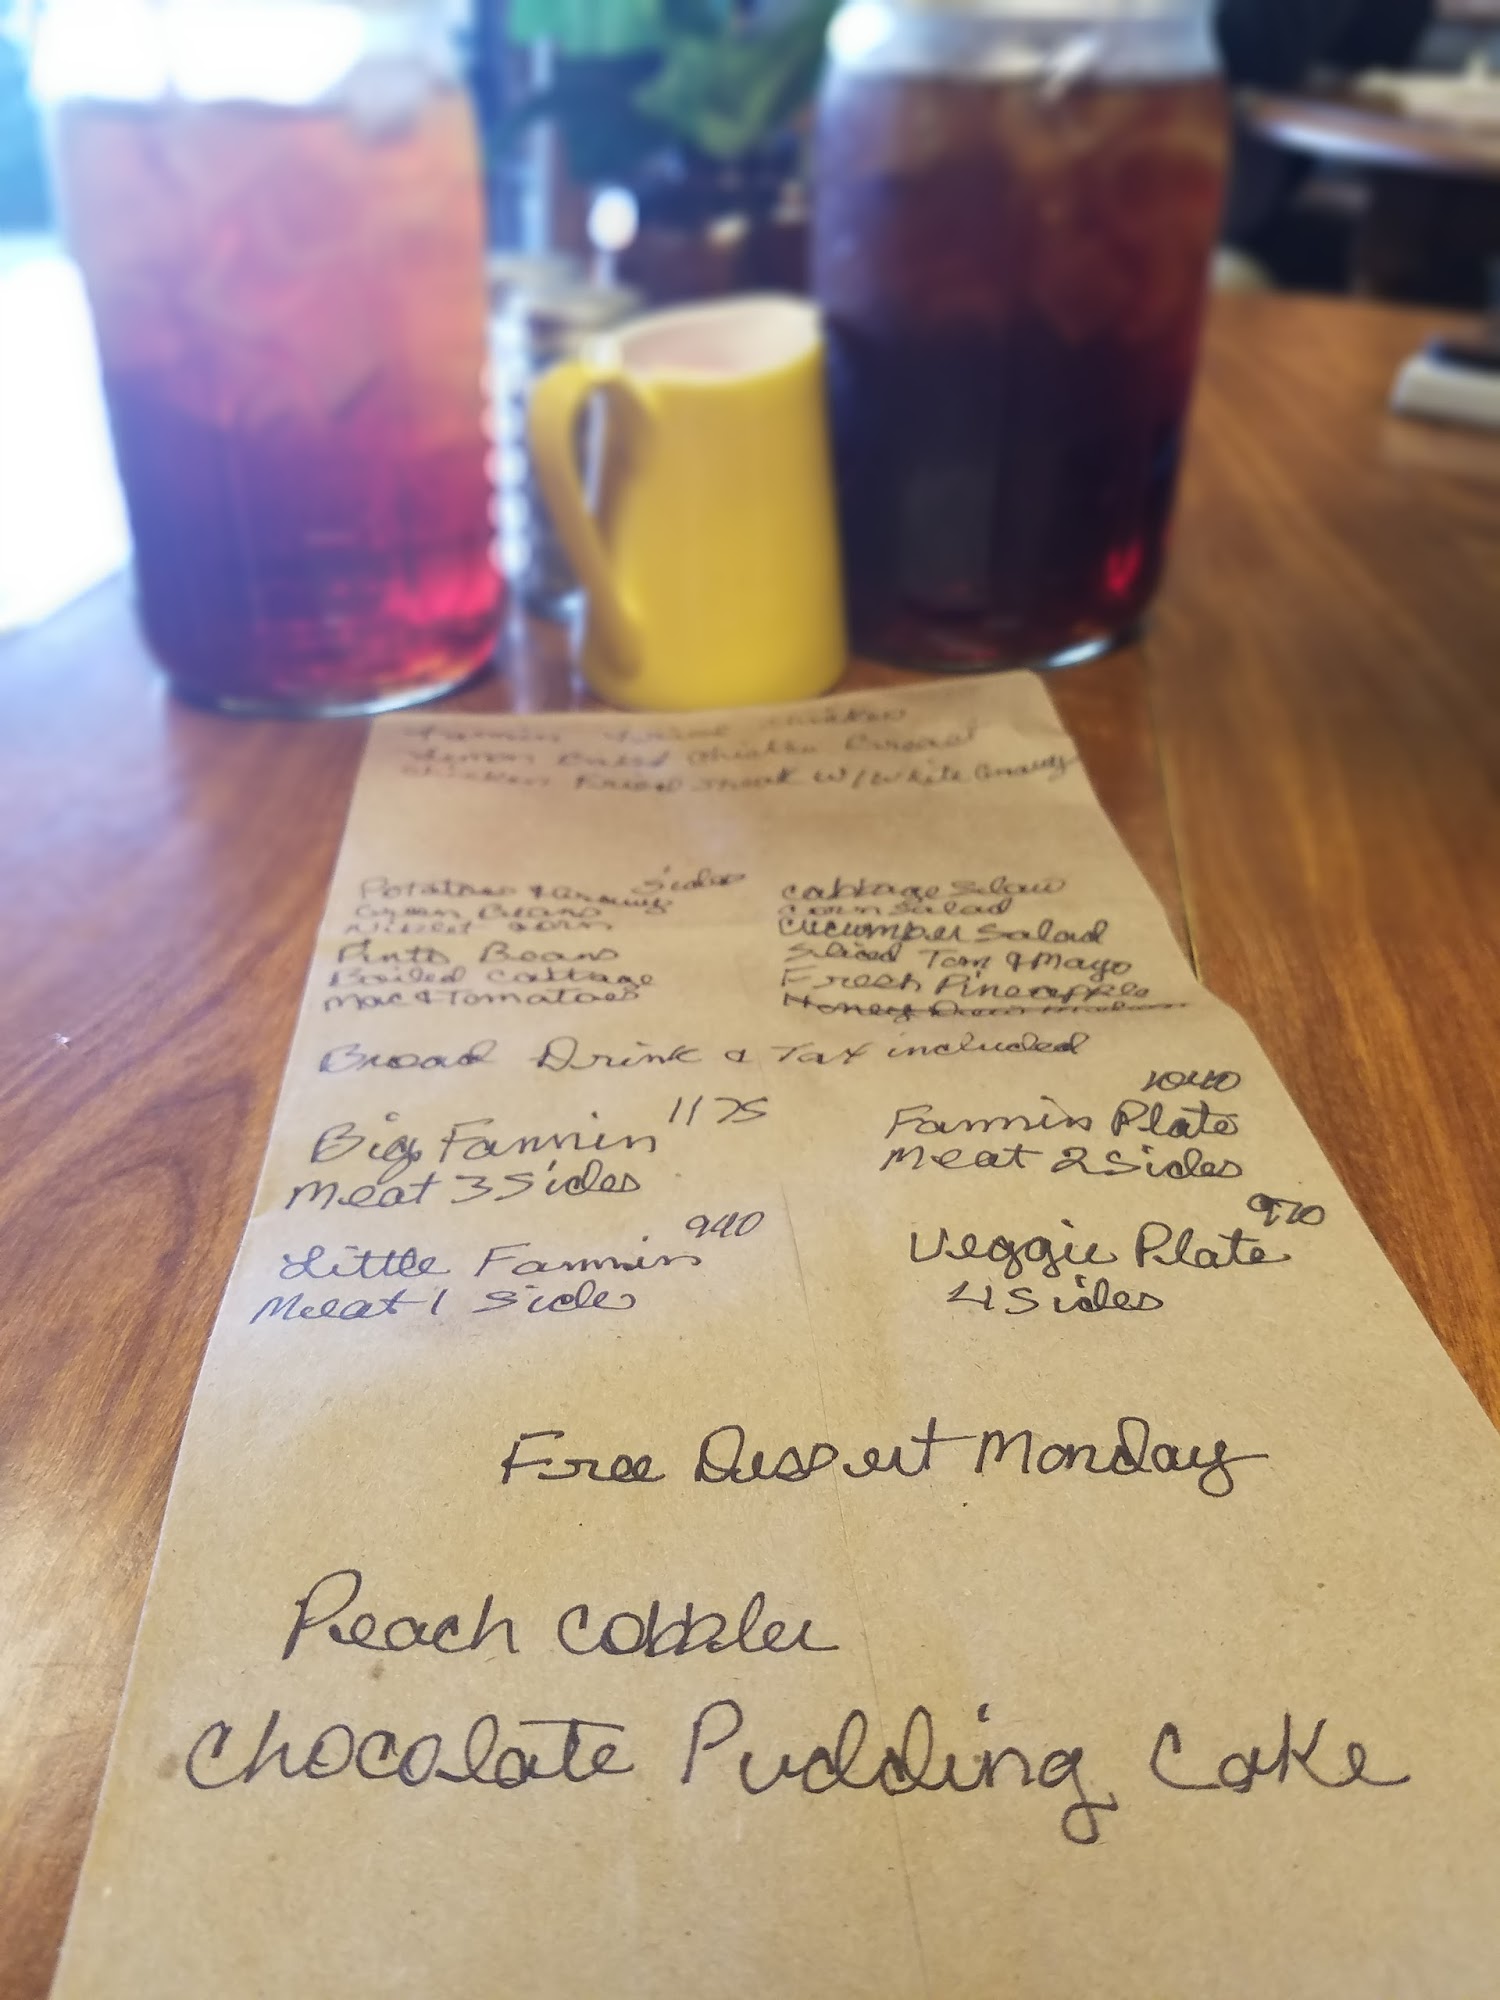 Fannin Fried Chicken
Lemon Baked Chicken Breast
Chicken Fried Steak W/White Gravy
Sides
Potatoes & Gravy
Green Beans
Niblet Corn
Pinto Beans
Boiled Cabbage
Mac & Tomatoes
Cabbage Slaw
Corn Salad
Cucumber Salad
Sliced Tom & Mayo
Fresh Pineapple
Honey Dew Melon
Bread Drink & Tax included
Big Fannin 1175
Meat 3 Sides
Fannin Plate 1040
Meat 2 Sides
Little Fannin 940
Meat 1 Side
Veggie Plate 970
4 Sides
Free Dessert Monday
Peach Cobbler
Chocolate Pudding Cake